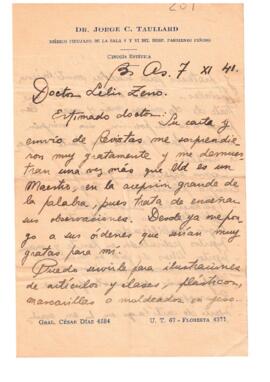 201
Dr. Jorge C. Taullard
Médico Cirujano de la Sala V y VI del Hosp. Parmenio Piñero
Cirugía Estética
Bs As. 7 XI 41.
Doctor Lelio Zeno.
Estimado doctor: Su carta y
envío de Revistas me sorprendie
ron muy gratamente y me demues
tran una vez más que Ud es un
Maestro, en la acepción grande de
la palabra, pues trata de enseñar
sus observaciones. Desde ya me pon
go a sus órdenes que serían muy
gratas para mí.
Puedo servirle para ilustraciones
de artículos y clases, plásticos,
mascarillas o moldeados en yeso.
Gral. César Díaz 4584
U. T. 67 - Floresta 4371